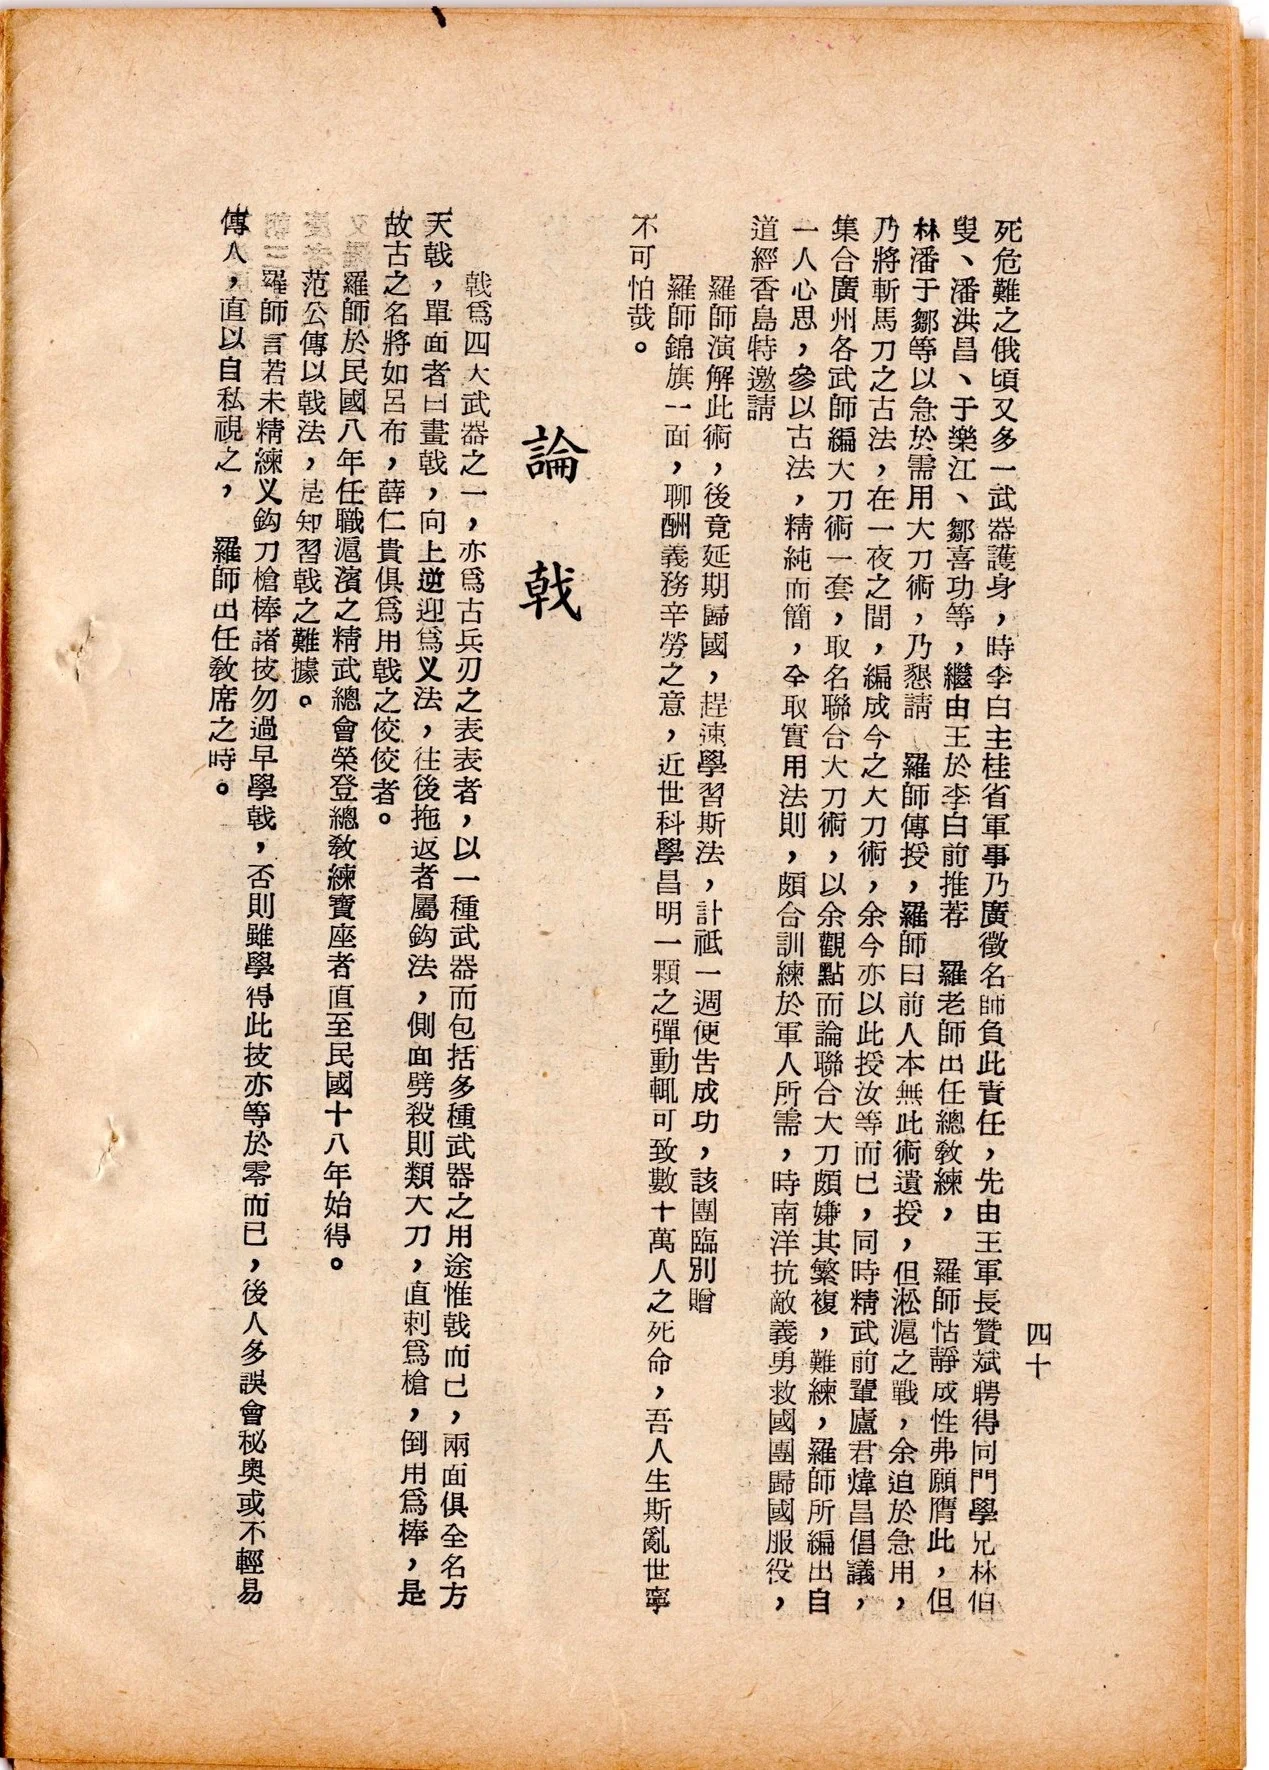 四十
死危難之俄頃又多一武器護身，時李白主桂省軍事乃廣徵名師負此責任，先由王軍長贊斌聘得同門學兄林伯
叟、潘洪昌、于樂江、鄒喜功等，繼由王於李白前推荐　羅老師出任總教練，　羅師怙靜成性弗願膺此，但
林潘于鄒等以急於需用大刀術，乃懇請　羅師傳授，羅師曰前人本無此術遺授，但淞滬之戰，余迫於急用，
乃將斬馬刀之古法，在一夜之間，編成今之大刀術，余今亦以此授汝等而已，同時精武前輩廬君煒昌倡議，
集合廣州各武師編大刀術一套，取名聯合大刀術，以余觀點而論聯合大刀頗嫌其繁複，難練，羅師所編出自
一人心思，參以古法，精純而簡，全取實用法則，頗合訓練於軍人所需，時南洋抗敵義勇救國團歸國服役，
道經香島特邀請
羅師演解此術，後竟延期歸國，趕速學習斯法，計祗一週便告成功，該團臨別贈
羅師錦旗一面，聊酬義務辛勞之意，近世科學昌明一顆之彈動輒可致數十萬人之死命，吾人生斯亂世寧
不可怕哉。
論戟
戟爲四大武器之一，亦爲古兵刃之表表者，以一種武器而包括多種武器之用途惟戟而已，兩面俱全名方
天戟，單面者曰畫戟，向上逆迎爲义法，往後拖返者屬鈎法，側面劈殺則類大刀，直刺爲槍，倒用爲棒，是
故古之名將如呂布，薛仁貴俱爲用戟之佼佼者。
羅師於民國八年任職滬濱之精武總會榮登總教練寶座者直至民國十八年始得。
范公傳以戟法，是知習戟之難據。
羅師言若未精練义鈎刀槍棒諸技勿過早學戟，否則雖學得此技亦等於零而已，後人多誤會秘奧或不輕易
傳人，直以自私視之，　羅師出任教席之時。